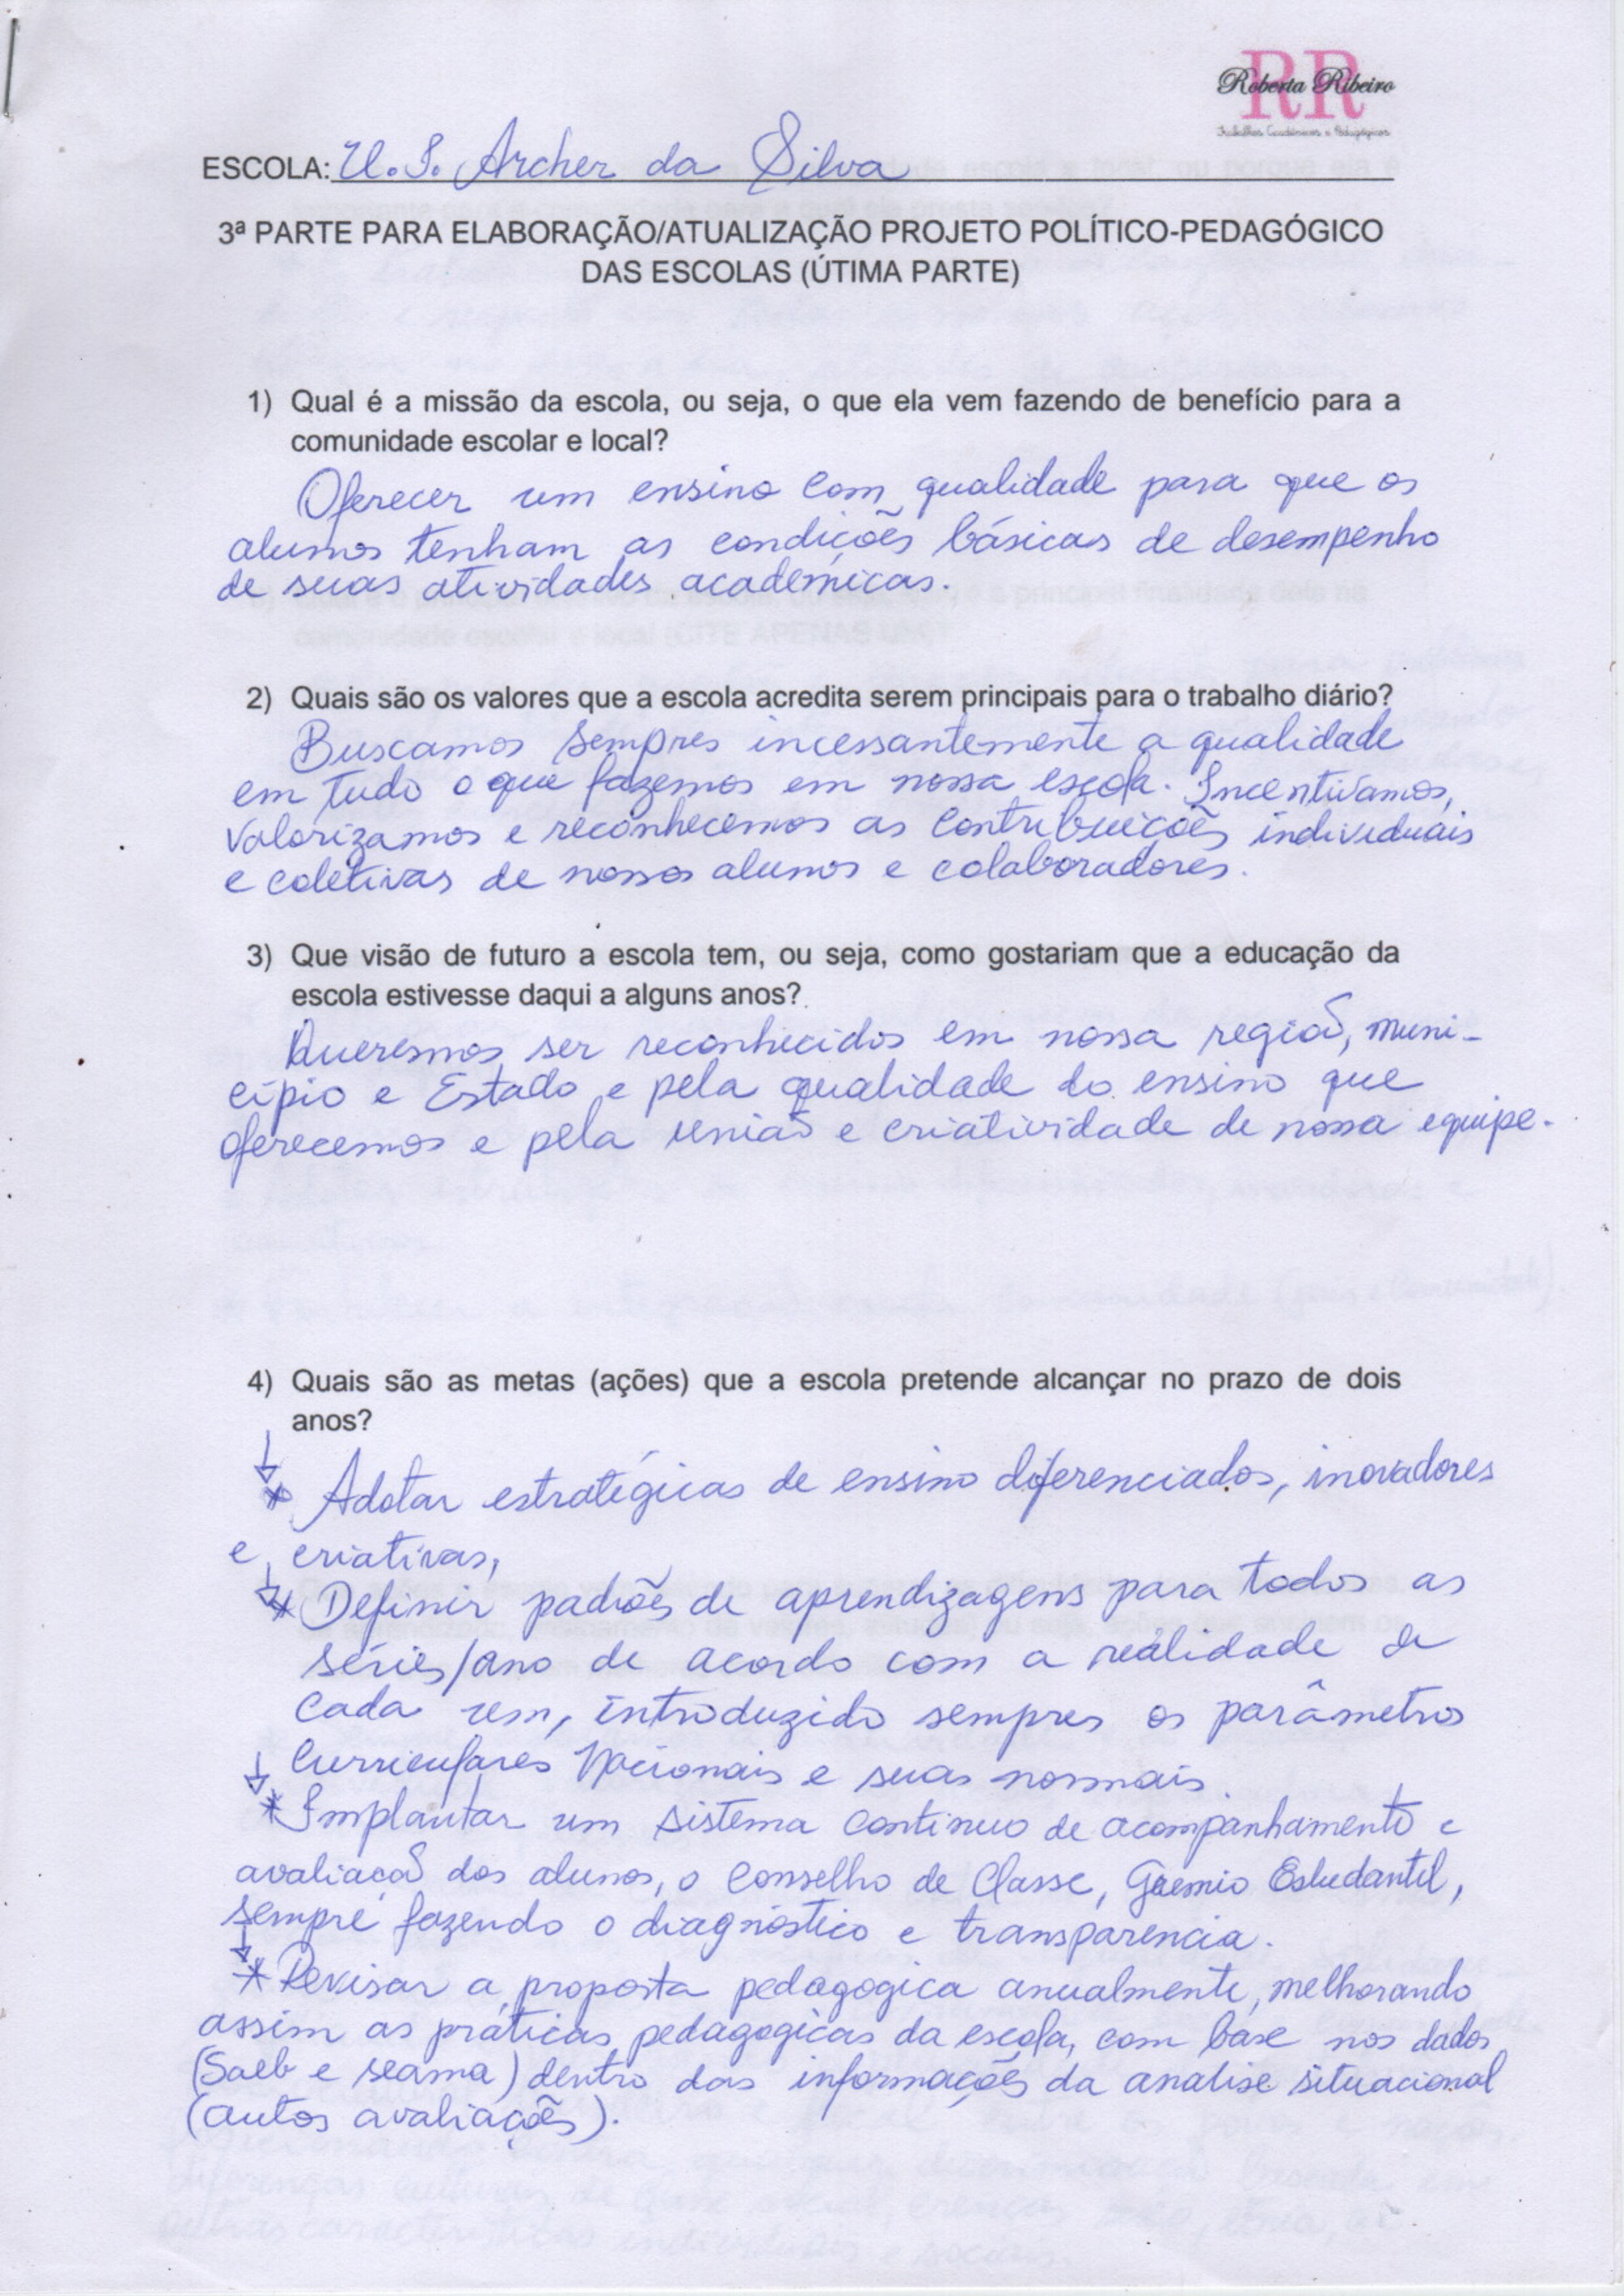 RR
Roberta Ribeiro
Trabalhos Acadêmicos e Pedagógicos
ESCOLA: U. I. Archer da Silva
3ª PARTE PARA ELABORAÇÃO/ATUALIZAÇÃO PROJETO POLÍTICO-PEDAGÓGICO
DAS ESCOLAS (ÚTIMA PARTE)
1) Qual é a missão da escola, ou seja, o que ela vem fazendo de benefício para a
comunidade escolar e local?
Oferecer um ensino com qualidade para que os
alunos tenham as condições básicas de desempenho
de suas atividades acadêmicas.
2) Quais são os valores que a escola acredita serem principais para o trabalho diário?
Buscamos sempres incessantemente a qualidade
em tudo o que fazemos em nossa escola. Incentivamos,
valorizamos e reconhecemos as contribuições individuais
e coletivas de nossos alunos e colaboradores.
3) Que visão de futuro a escola tem, ou seja, como gostariam que a educação da
escola estivesse daqui a alguns anos?
Queremos ser reconhecidos em nossa região, muni-
cípio e Estado e pela qualidade do ensino que
oferecemos e pela união e criatividade de nossa equipe.
4) Quais são as metas (ações) que a escola pretende alcançar no prazo de dois
anos?
* Adotar estratégicas de ensino diferenciados, inovadores
e criativas,
* Definir padrões de aprendizagens para todos as
séries/ano de acordo com a realidade de
cada um, introduzido sempres os parâmetros
Curriculares Nacionais e suas normais.
* Implantar um sistema continuo de acompanhamento e
avaliação dos alunos, o Conselho de Classe, Gremio Estudantil,
sempre fazendo o diagnóstico e transparencia.
* Revisar a proposta pedagogica anualmente, melhorando
assim as práticas pedagogicas da escola, com base nos dados
(Saeb e seama) dentro das informações da analise situacional
(autos avaliações).